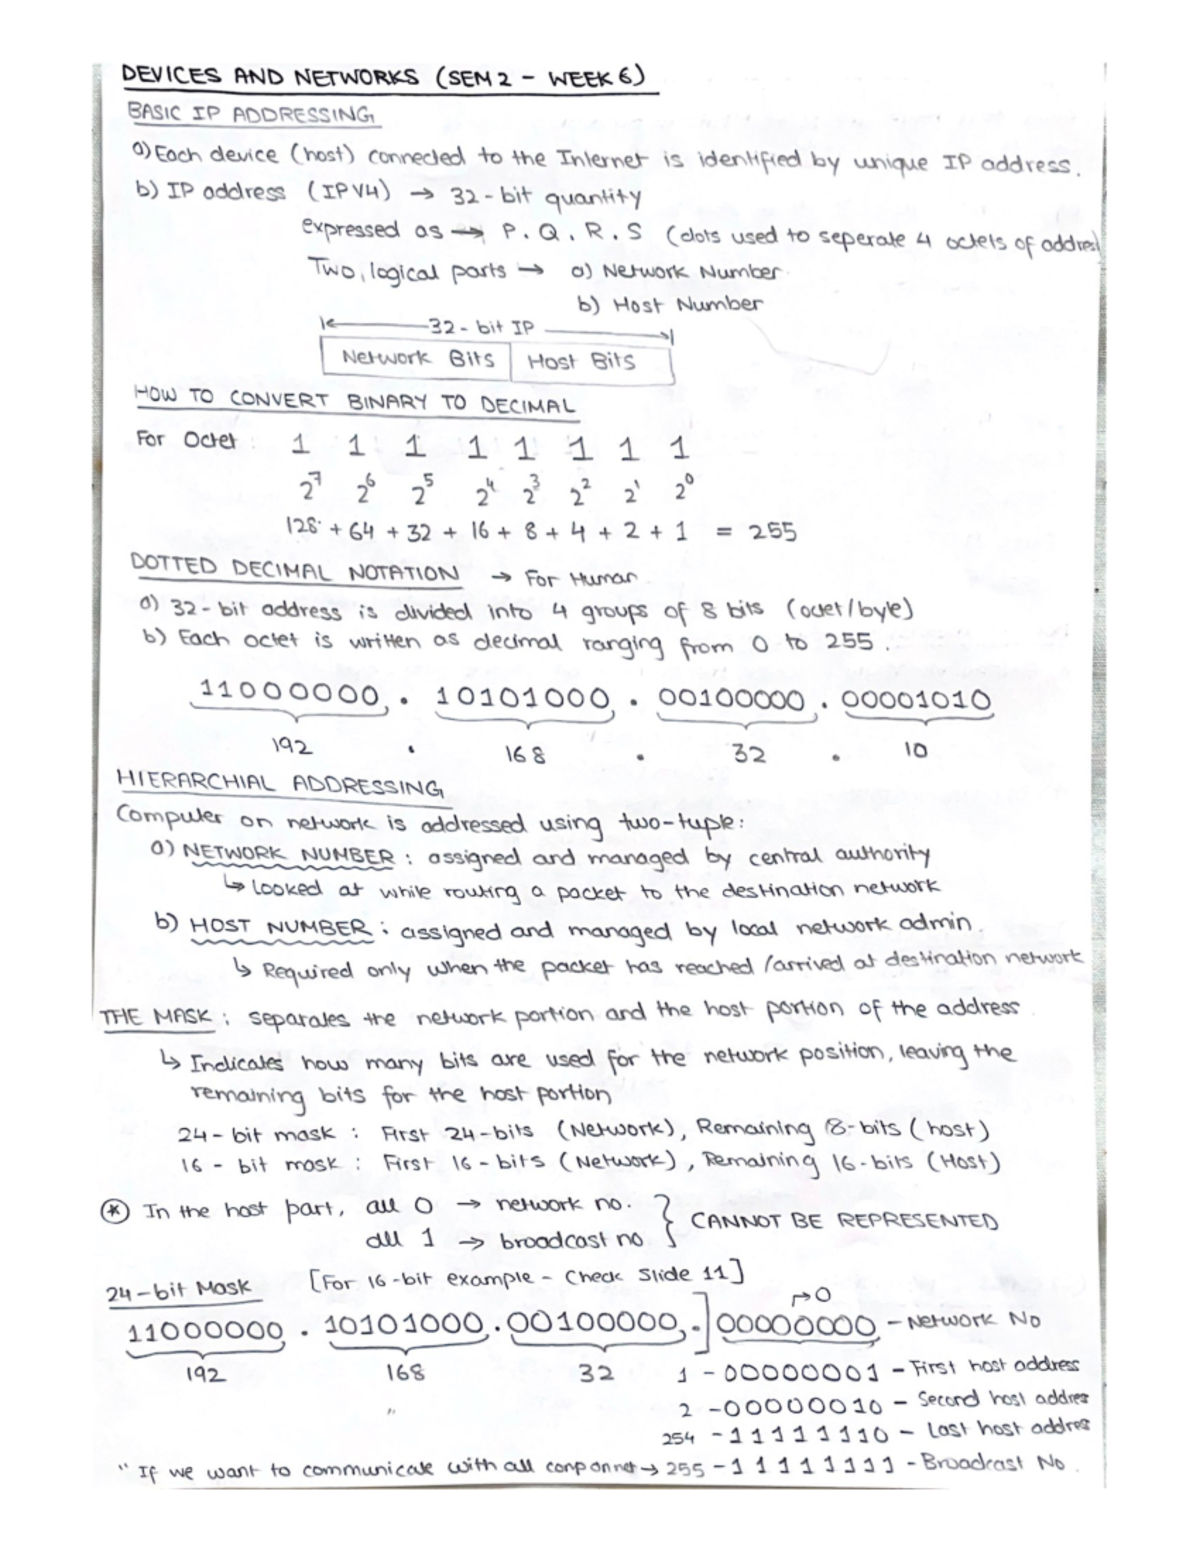 DEVICES AND NETWORKS (SEM 2 - WEEK 6)
BASIC IP ADDRESSING
a) Each device (host) connected to the Internet is identified by unique IP address.
b) IP address (IPV4) → 32-bit quantity
expressed as → P. Q. R. S (dots used to seperate 4 octets of address
Two, logical parts → a) Network Number
b) Host Number
32-bit IP
Network Bits Host Bits
HOW TO CONVERT BINARY TO DECIMAL
For Octet 1 1 1 1 1 1 1 1
2⁷ 2⁶ 2⁵ 2⁴ 2³ 2² 2¹ 2⁰
128 + 64 + 32 + 16 + 8 + 4 + 2 + 1 = 255
DOTTED DECIMAL NOTATION → For Human
a) 32-bit address is divided into 4 groups of 8 bits (octet/byte)
b) Each octet is written as decimal ranging from 0 to 255.
11000000 . 10101000 . 00100000 . 00001010
192 . 168 . 32 . 10
HIERARCHIAL ADDRESSING
Computer on network is addressed using two-tuple:
a) NETWORK NUMBER : assigned and managed by central authority
↳ looked at while routing a packet to the destination network
b) HOST NUMBER : assigned and managed by local network admin.
↳ Required only when the packet has reached /arrived at destination network
THE MASK : separates the network portion and the host portion of the address
↳ Indicates how many bits are used for the network position, leaving the
remaining bits for the host portion
24-bit mask : First 24-bits (Network), Remaining 8-bits (host)
16 - bit mask : First 16-bits (Network), Remaining 16-bits (Host)
* In the host part, all 0 → network no. } CANNOT BE REPRESENTED
all 1 → broadcast no
24-bit Mask [For 16-bit example - Check Slide 11]
→ 0
11000000 . 10101000 . 00100000 . ] 00000000 - Network No
192 168 32 1 - 00000001 - First host address
" 2 - 00000010 - Second host addres
254 - 11111110 - Last host addres
" If we want to communicate with all → 255 - 11111111 - Broadcast No.